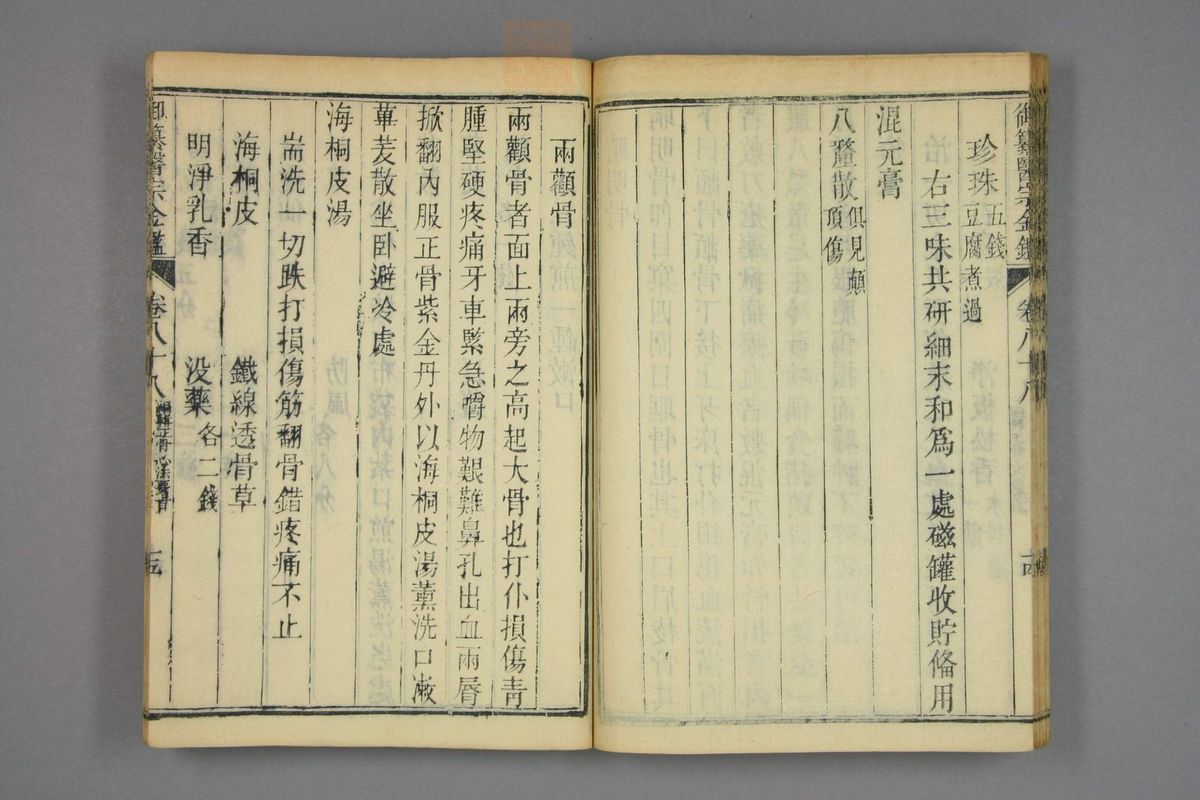 御纂醫宗金鑑 卷八十八
珍珠 五錢 豆腐煮過
右三味共研細末和爲一處磁罐收貯俻用
混元膏
八釐散 俱見顛頂傷
兩顴骨
兩顴骨者面上兩旁之高起大骨也打仆損傷靑
腫堅硬疼痛牙車緊急嚼物艱難鼻孔出血兩唇
掀翻內服正骨紫金丹外以海桐皮湯薰洗口漱
蓽茇散坐卧避冷處
海桐皮湯
耑洗一切跌打損傷筋翻骨錯疼痛不止
海桐皮 鐵線透骨草
明淨乳香 没藥 各二錢
御纂醫宗金鑑 卷八十八